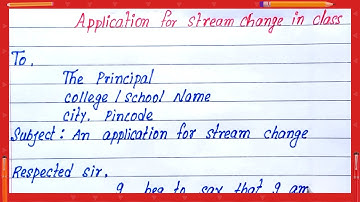 Application for stream change in class
To,
The Principal
college / School Name
city, Pincode
Subject: An application for stream change
Respected sir,
I beg to say that I am